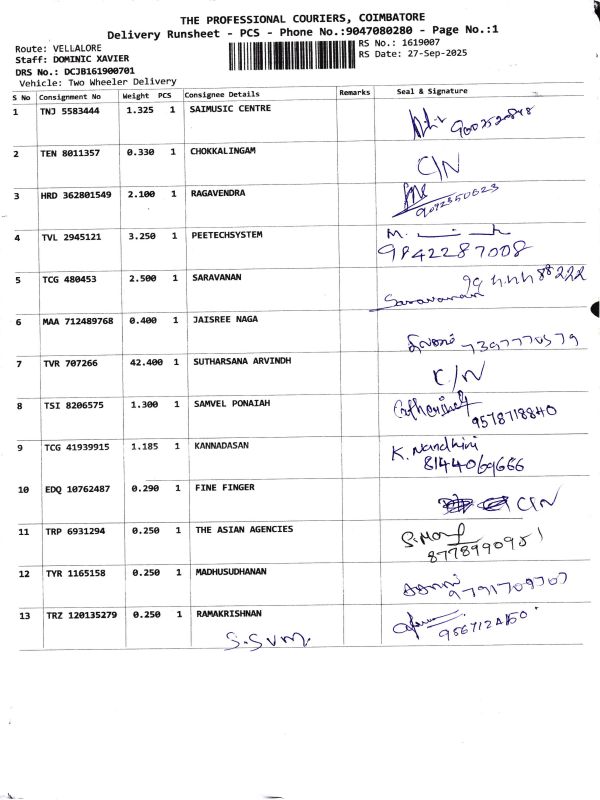 THE PROFESSIONAL COURIERS, COIMBATORE
Delivery Runsheet - PCS - Phone No.:9047080280 - Page No.:1
Route: VELLALORE
RS No.: 1619007
Staff: DOMINIC XAVIER
RS Date: 27-Sep-2025
DRS No.: DCJB161900701
Vehicle: Two Wheeler Delivery
S No Consignment No Weight PCS Consignee Details Remarks Seal & Signature
1 TNJ 5583444 1.325 1 SAIMUSIC CENTRE
2 TEN 8011357 0.330 1 CHOKKALINGAM C/N
3 HRD 362801549 2.100 1 RAGAVENDRA
9092350623
4 TVL 2945121 3.250 1 PEETECHSYSTEM M.
9842287008
5 TCG 480453 2.500 1 SARAVANAN
Saravanan
6 MAA 712489768 0.400 1 JAISREE NAGA
7397770579
7 TVR 707266 42.400 1 SUTHARSANA ARVINDH C/N
8 TSI 8206575 1.300 1 SAMVEL PONAIAH
9578718840
9 TCG 41939915 1.185 1 KANNADASAN K. Nandhini
8144069666
10 EDQ 10762487 0.290 1 FINE FINGER C/N
11 TRP 6931294 0.250 1 THE ASIAN AGENCIES
8778990951
12 TYR 1165158 0.250 1 MADHUSUDHANAN
9791709707
13 TRZ 120135279 0.250 1 RAMAKRISHNAN
S.SVM.